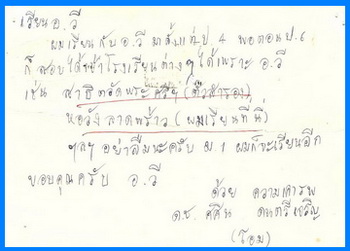 เรียน อ.วี
ผมเรียนกับ อ.วี มาตั้งแต่ ป 4 พอตอน ป.6
ก็สอบได้เข้าโรงเรียนต่างๆ ได้เพราะ อ.วี
เช่น สาธิต (ตัวสำรอง)
หอวัง ลาดพร้าว (ผมเรียนที่นี่)
ฯลฯ อย่าลืมนะครับ ม 1 ผมก็จะเรียนอีก
ขอบคุณครับ อ.วี
ด้วย ความเคารพ
ด.ช. ดนตรีเจริญ
(โอม)